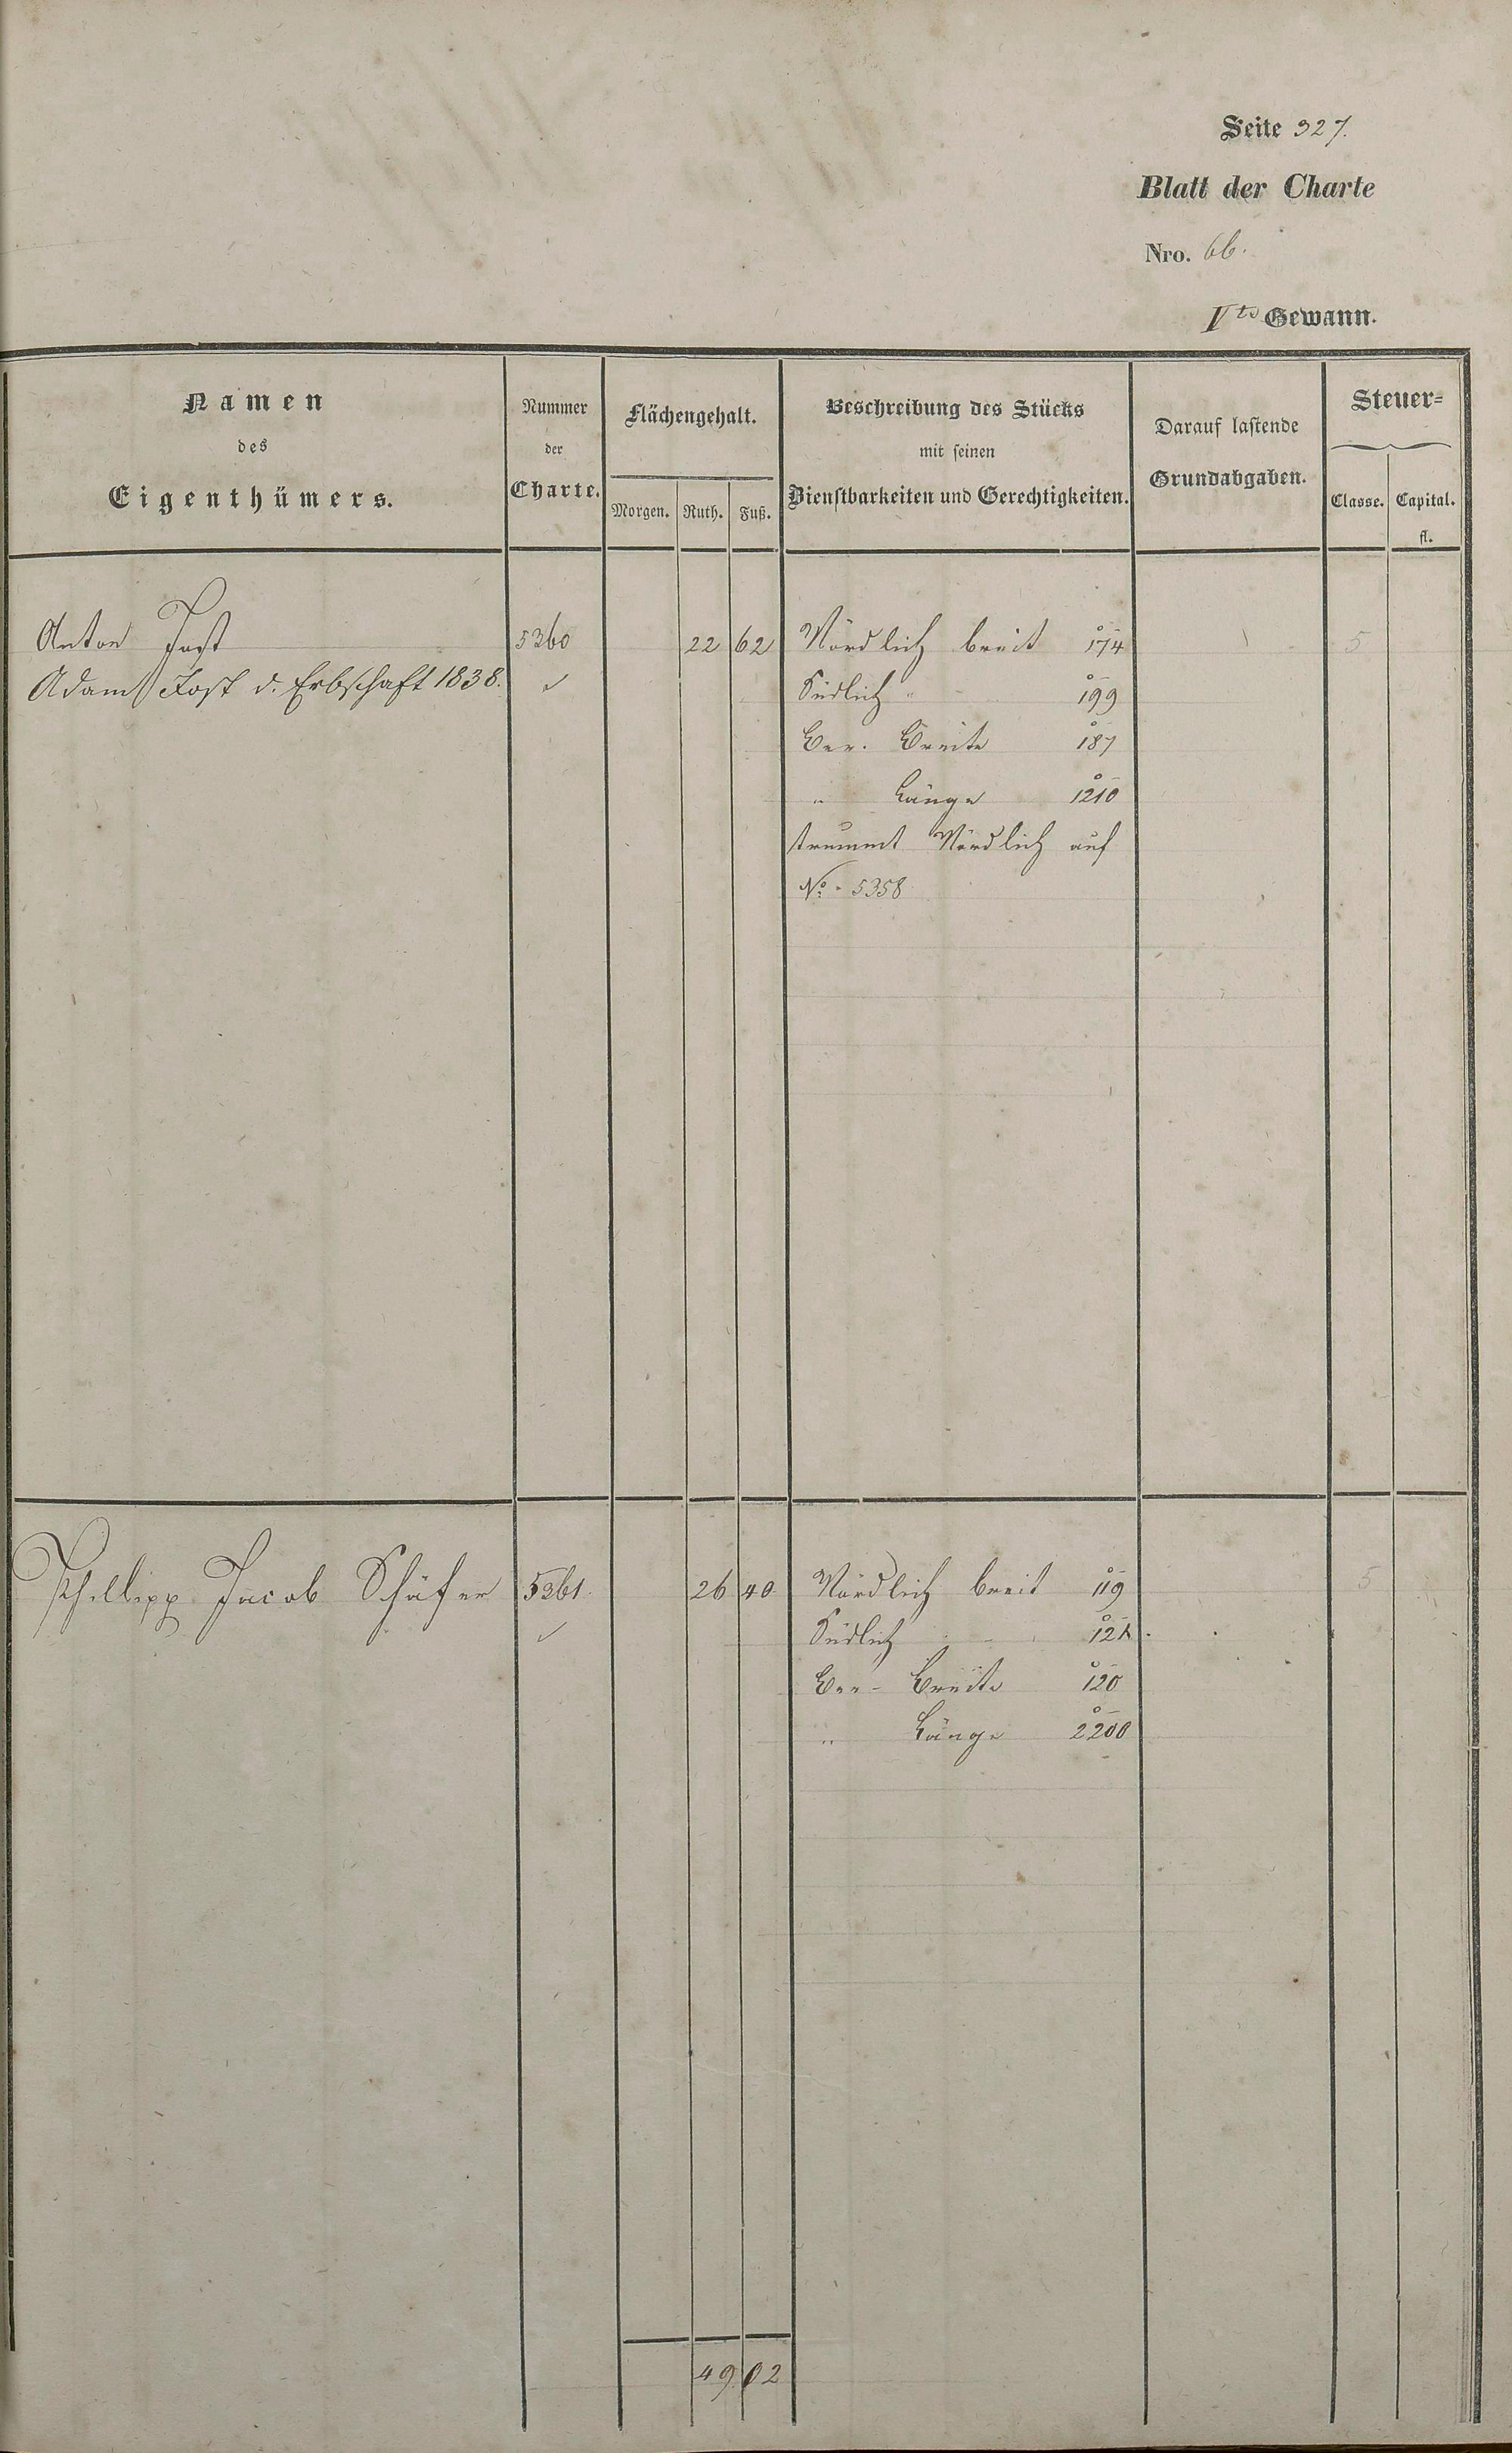 Seite 327.
Blatt der Charte
Nro. 66.
Vte Gewann.
Namen des Eigenthümers.
Nummer der Charte.
Flächengehalt.
Morgen. Ruth. Fuß.
Beschreibung des Stücks mit seinen Dienstbarkeiten und Gerechtigkeiten.
Darauf lastende Grundabgaben.
Steuer=
Classe. Capital. fl.
Anton Jost 5360 22 62 Nördlich breit 174 5
Adam Jost d. Erbschaft 1838. Südlich " 199
Ber. Breite 187
" Länge 1210
Nördlich auf
No. 5358
Phillipp Jacob Schäfer 5361. 26 40 Nördlich breit 119 5
Südlich 121
Ber. Breite 120
" Länge 2200
49 02